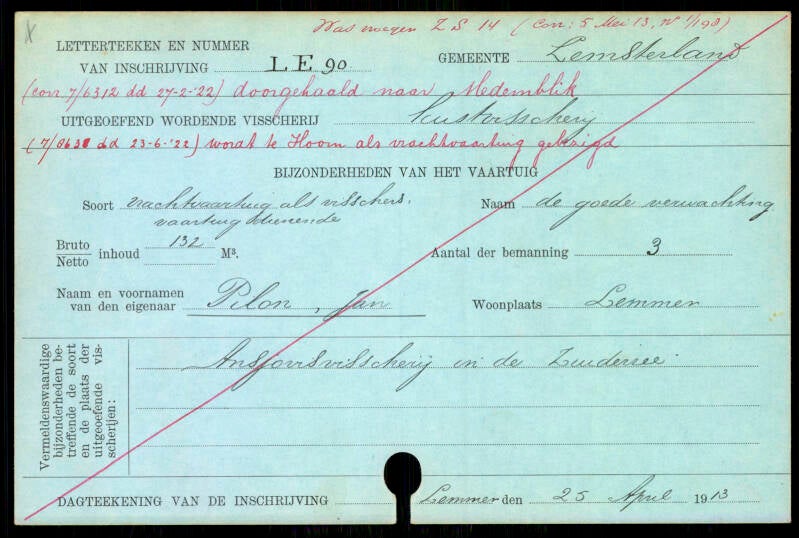 Was vroegen Z S 14 (Corr: 5 Mei 13, No 1/198)
LETTERTEEKEN EN NUMMER
VAN INSCHRIJVING LE 90
GEMEENTE Lemsterland
(corr 7/6312 dd 27-2-'22) doorgehaald naar Medemblik
UITGEOEFEND WORDENDE VISSCHERIJ kustvisscherij
(7/8638 dd 23-6-'22) wordt te Hoorn als vrachtvaartuig gebezigd
BIJZONDERHEDEN VAN HET VAARTUIG
Soort vrachtvaartuig als visschers.
vaartuig dienende
Naam de goede verwachting
Bruto
Netto inhoud 132 M³.
Aantal der bemanning 3
Naam en voornamen
van den eigenaar Pilon, Jan
Woonplaats Lemmer
Vermeldenswaardige
bijzonderheden be-
treffende de soort
en de plaats der
uitgeoefende vis-
scherijen:
Ansjovisvisscherij in de Zuiderzee.
DAGTEEKENING VAN DE INSCHRIJVING Lemmer den 25 April 1913